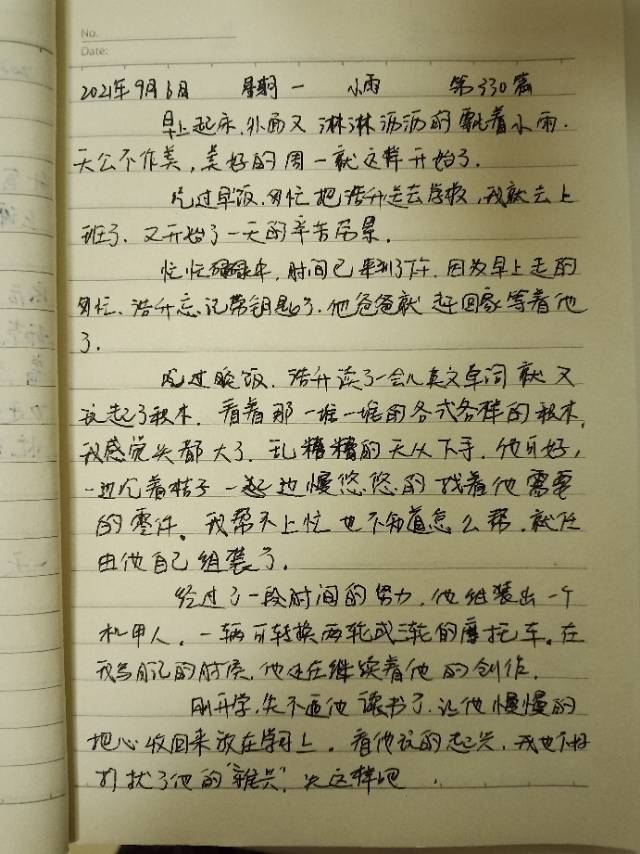 No.
Date:
2021年9月6日 星期一 小雨 第330篇
早上起床,外面又淋淋沥沥的飘着小雨.
天公不作美,美好的周一就这样开始了.
吃过早饭,匆忙把浩升送去学校,我就去上
班了.又开始了一天的辛苦
忙忙碌碌中,时间已来到了下午,因为早上走的
匆忙.浩升忘记带钥匙了.他爸爸就赶回家等着他
了.
吃过晚饭.浩升读了一会儿英文单词就又
玩起了积木.看着那一堆一堆的各式各样的积木,
我感觉头都大了.乱糟糟的无从下手.他可好,
一边吃着桔子一起边慢悠悠的找着他需要
的零件.我帮不上忙也不知道怎么帮.就任
由他自己组装了.
经过了一段时间的努力.他组装出一个
机甲人.一辆可转换两轮或三轮的摩托车.在
我写日记的时候.他还在继续着他的创作.
刚开学,先不逼他读书了.让他慢慢的
把心收回来放在学习上.看他玩的起兴,我也不好
打扰了他的"雅兴".先这样吧.